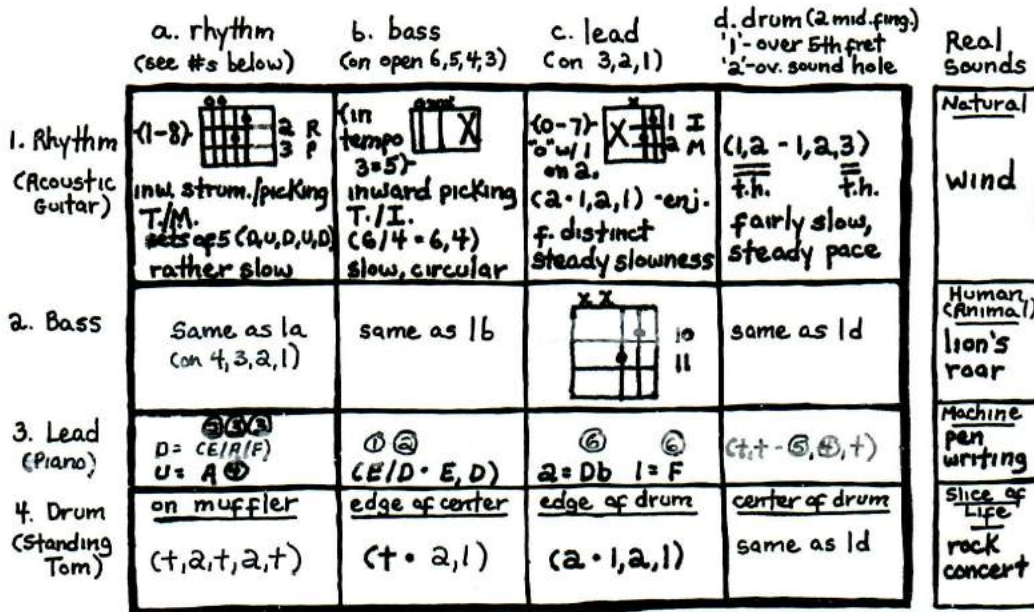 a. rhythm
(see #s below)
b. bass
(on open 6,5,4,3)
c. lead
(on 3,2,1)
d. drum (2 mid.fing.)
'1'-over 5th fret
'2'-ov. sound hole
Real
Sounds
1. Rhythm
(Acoustic
Guitar)
(1-8)
2 R
3 P
inw. strum./picking
T./M.
sets of 5 (D,U,D,U,D)
rather slow
(in
tempo
3=5)
X
inward picking
T./I.
(6/4 = 6,4)
slow, circular
(0-7)
"0" w/ 1
on 2.
x
X
1 I
2 M
(2·1,2,1) -enj.
f. distinct
steady slowness
(1,2 - 1,2,3)
t.h. t.h.
fairly slow,
steady pace
Natural
wind
2. Bass
same as 1a
(on 4,3,2,1)
same as 1b
x x
10
11
same as 1d
Human
(Animal)
lion's
roar
3. Lead
(Piano)
5 3 3
D = CE/A/F)
U = A 4
1 2
(E/D · E, D)
6 6
2 = Db 1 = F
(t,t - 5,4,t)
Machine
pen
writing
4. Drum
(Standing
Tom)
on muffler
(t,2,t,2,t)
edge of center
(t · 2,1)
edge of drum
(2 · 1,2,1)
center of drum
same as 1d
Slice of
Life
rock
concert